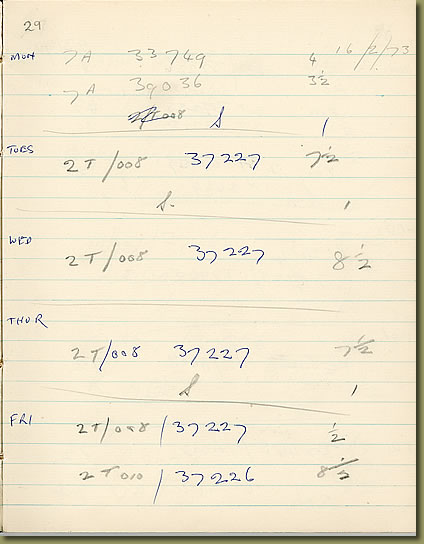 29
16/2/73
MON 7A 33749 4
7A 39036 3½
S 1
TUES 2T/008 37227 7½
S. 1
WED 2T/008 37227 8½
THUR
2T/008 37227 7½
S 1
FRI 2T/008 / 37227 ½
2T 010 / 37226 8½